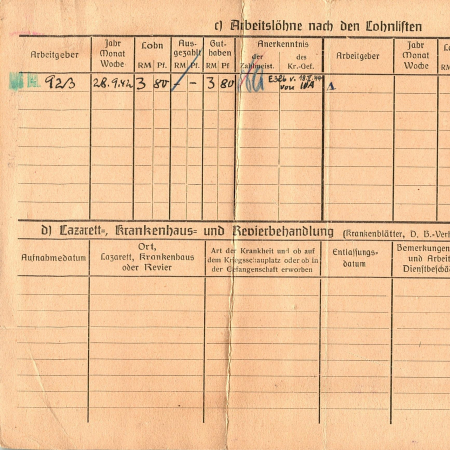 c) Arbeitslöhne nach den Lohnlisten
Arbeitgeber Jahr Monat Woche Lohn RM Pf. Ausgezahlt RM Pf. Guthaben RM Pf. Anerkenntnis der Zahlmeist. des Kr.-Gef. Arbeitgeber Jahr Monat Woche
923 28.9.42 3 80 - - 3 80 von
d) Lazarett-, Krankenhaus- und Revierbehandlung (Krankenblätter, D. B.-Verf
Aufnahmedatum Ort, Lazarett, Krankenhaus oder Revier Art der Krankheit und ob auf dem Kriegsschauplatz oder ob in der Gefangenschaft erworben Entlassungsdatum Bemerkungen und Arbeit Dienstbeschä